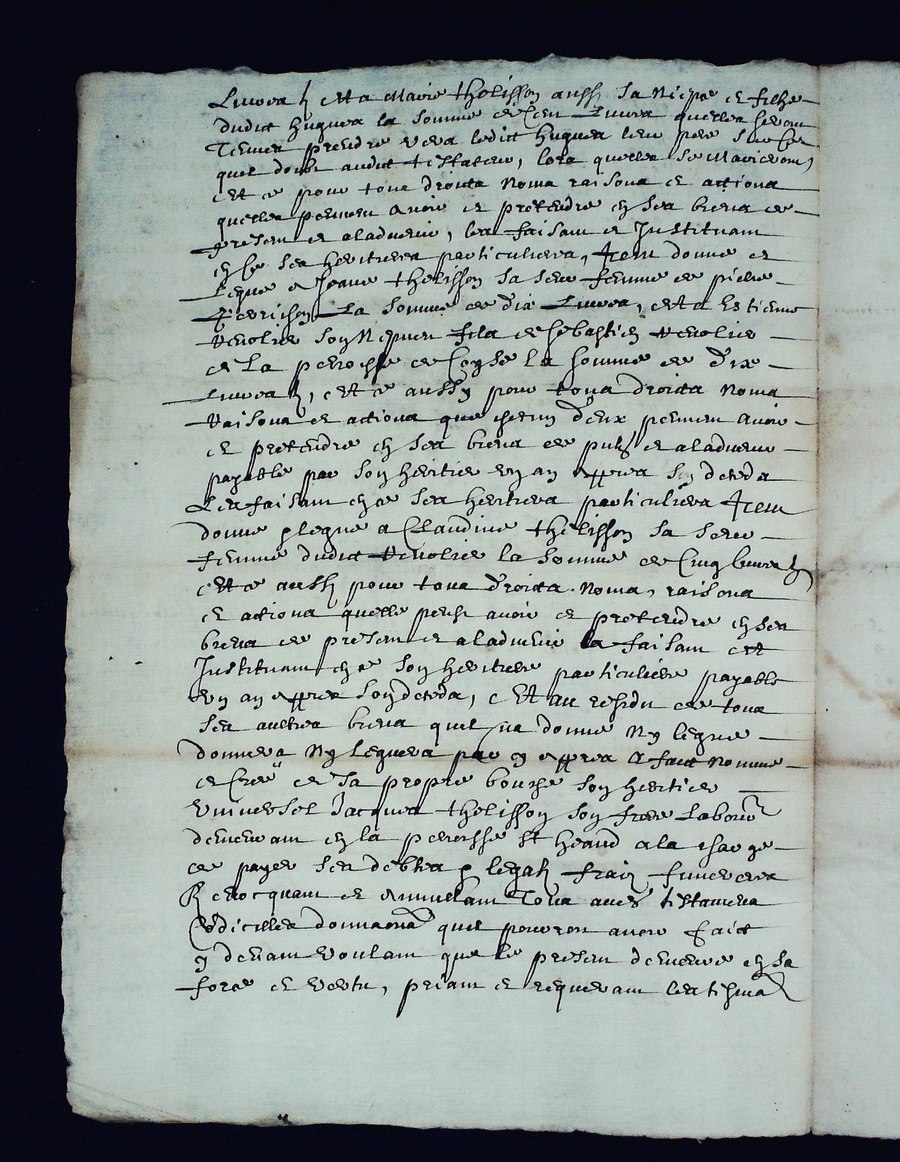 Livres et a Marie thelisson aussy sa Niepce et filhe
dudict hugues la somme de Cent Livres quelles seront
Tenues prendre vers ledict hugues leur pere sur Ce
quil doibt audict testateur, lors quelles se Marieront,
et ce pour tous droicts Noms raisons et actions
quelles peuvent avoir et pretendre en ses biens de
present et aladvenir, les faisant et Instituant
en Ce ses heritieres particulieres, Item donne et
Legue a Jeane thelisson sa seur femme de pierre
La somme de dix Livres, et a Estienne
Verolier son Nepveu fils de sebastien Verolier
de La perroche de la somme de dix
Livres, et ce aussy pour tous droicts Noms
Raisons et actions que chacun d'eux peuvent avoir
et pretendre en ses biens de pnt et aladvenir
payable par son heritier un an appres son deceds
Les faisant en ce ses heritiers particuliers Item
donne & legue a Claudine thelisson sa seur
femme dudict Verolier la somme de Cinq livres
et ce aussy pour tous droicts Noms, raisons
et actions quelle peust avoir et pretendre en ses
biens de present et aladvenir la faisant et
Instituant en ce son heritiere particuliere payable
un an appres son deceds, Et au residu de tous
ses aultres biens quil na donne Ny legue
donnera Ny leguera par cy appres A faict Nomme
et Cree de sa propre bouche son heritier
universel Jacques thelisson son frere Laboureur
demeurant en la perroisse St heand a la charge
de payer ses debtes & legats frais funeraires
Revocquant et Annullant Tous autres testaments
Codicilles donnaons quil pourroit avoir faict
cy devant voulant que le present demeure en sa
force et vertu, priant et requerant les tesmoings